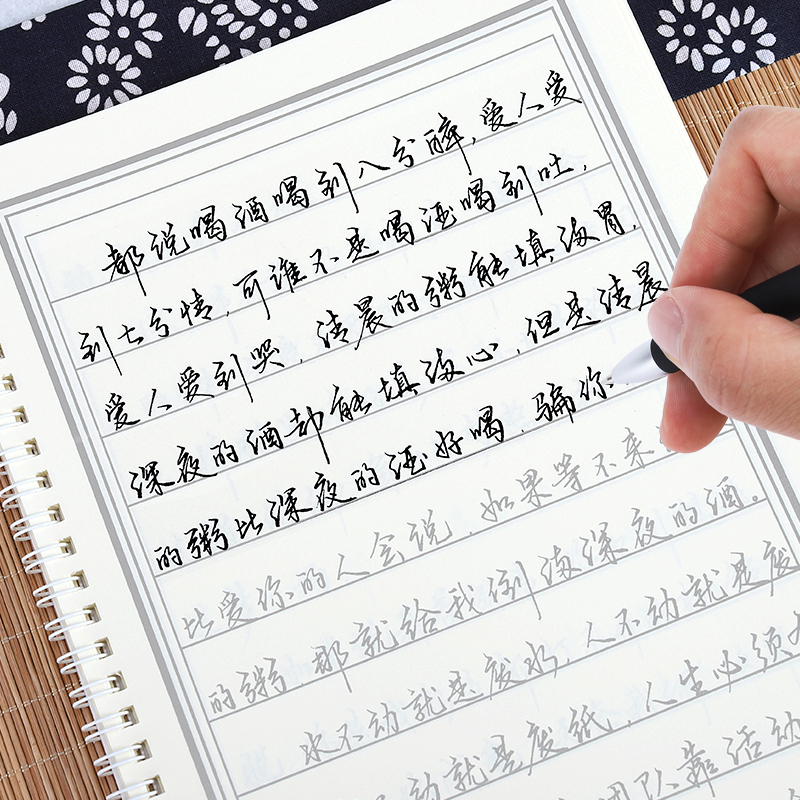 都说喝酒喝到八分醉，爱人爱
到七分情，可谁不是喝酒喝到吐，
爱人爱到哭，清晨的粥能填满胃，
深夜的酒却能填满心，但是清晨
的粥比深夜的酒好喝，骗你
比爱你的人会说，如果等不来
的粥，那就给我倒满深夜的酒。
水不动就是废水，人不动就是废
动就是废纸，人生必须
团队靠活动